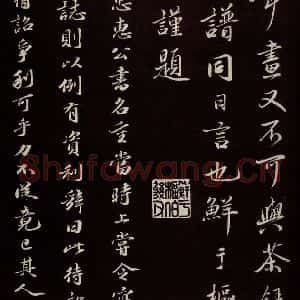 畫又不可與茶錄
譜同日言也鮮于樞
謹題
忠惠公書名在當時上嘗令寫
誌則以例有資利辭曰此待詔
待詔爭利可乎力不從竟已其人
Shufawang.CN